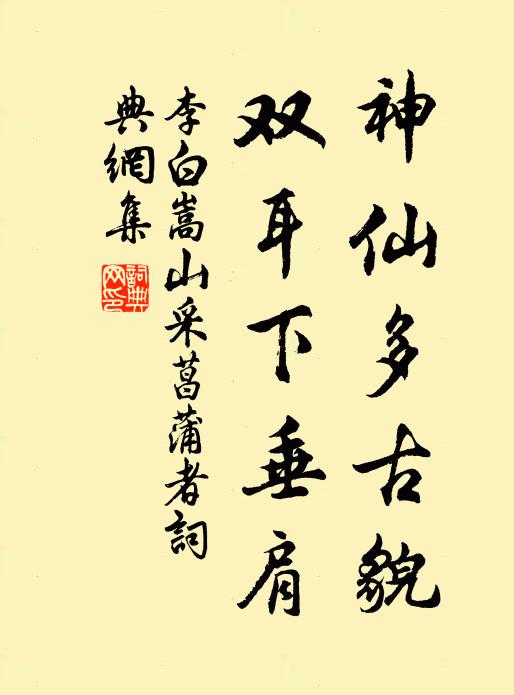 神仙多古貌
双耳下垂肩
李白嵩山采菖蒲者詞
典網集
詞典網印